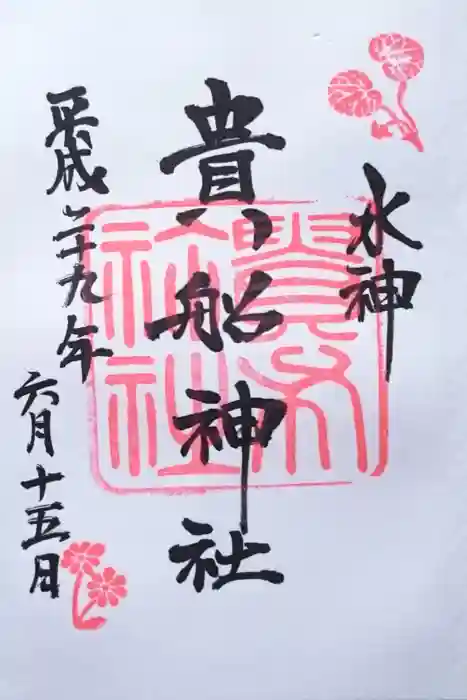 水神
貴船神社
平成二十九年
六月十五日